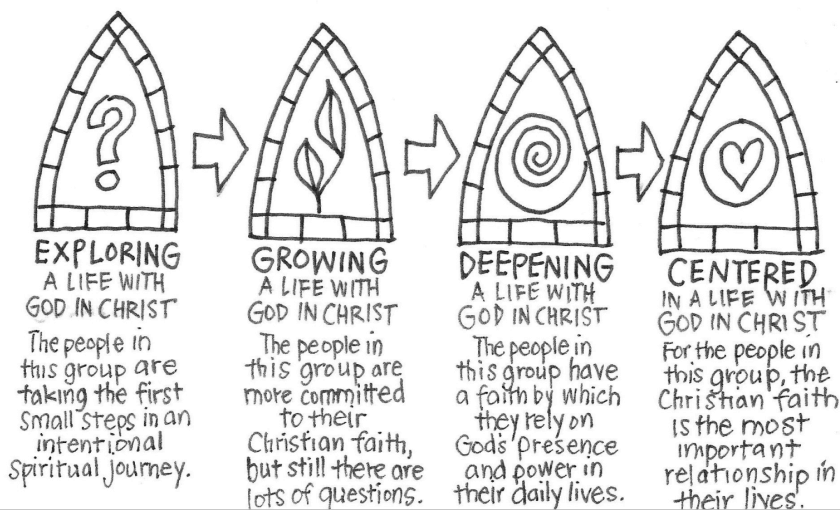 ?
EXPLORING
A LIFE WITH
GOD IN CHRIST
The people in
this group are
taking the first
Small steps in an
intentional
Spiritual Journey.
GROWING
A LIFE WITH
GOD IN CHRIST
The people in
this group are
more committed
to their
Christian faith,
but still there are
lots of questions.
DEEPENING
A LIFE WITH
GOD IN CHRIST
The people in
this group have
a faith by which
they rely on
God's Presence
and power in
their daily lives.
CENTERED
IN A LIFE WITH
GOD IN CHRIST
For the people in
this group, the
Christian faith
is the most
important
relationship in
their lives.